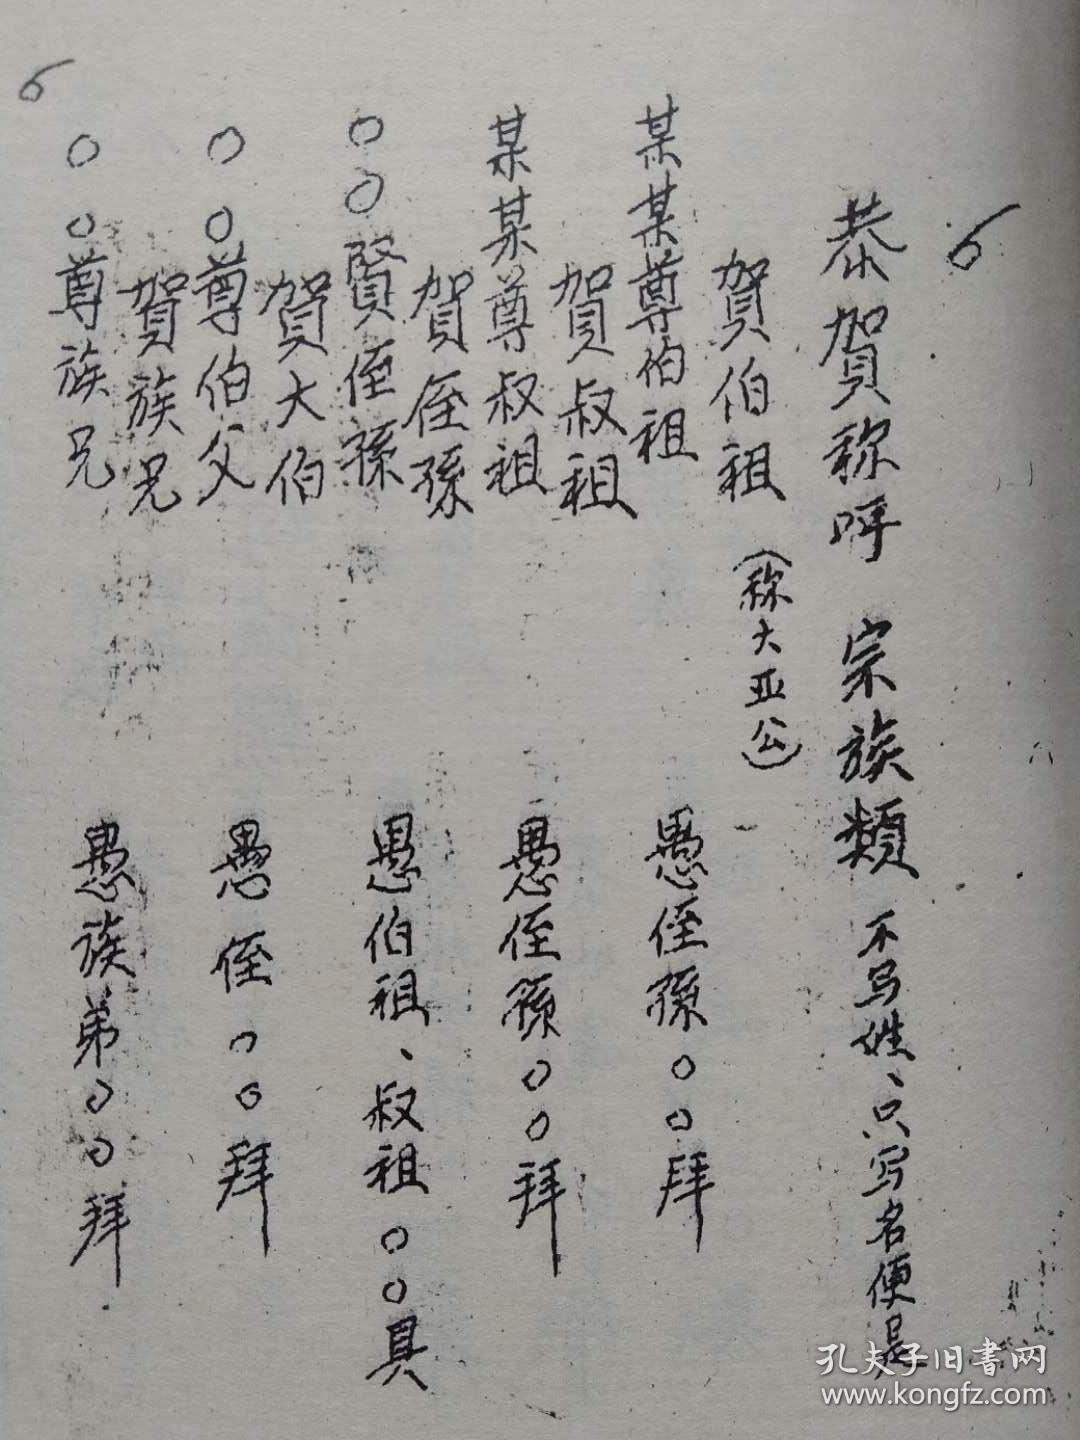 6
恭賀称呼 宗族類 不写姓、只写名便是
賀伯祖 (称大亚公)
某某尊伯祖 愚侄孫○○拜
賀叔祖
某某尊叔祖 愚侄孫○○拜
賀侄孫
○○賢侄孫 愚伯祖、叔祖○○具
賀大伯
○○尊伯父 愚侄○○拜
賀族兄
○○尊族兄 愚族弟○○拜
6
孔夫子旧書网
www.kongfz.com